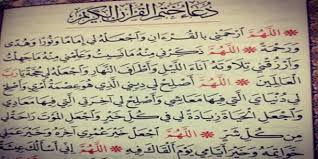 دُعَاءُ خَتْمِ الْقُرْآنِ الْكَرِيمِ
* اللَّهُمَّ ارْحَمْنِي بِالْقُرْءَانِ وَاجْعَلْهُ لِي إِمَامًا وَنُورًا وَهُدًى
وَرَحْمَةً * اللَّهُمَّ ذَكِّرْنِي مِنْهُ مَا نَسِيتُ وَعَلِّمْنِي مِنْهُ مَا جَهِلْتُ
وَارْزُقْنِي تِلَاوَتَهُ آنَاءَ اللَّيْلِ وَأَطْرَافَ النَّهَارِ وَاجْعَلْهُ لِي حُجَّةً يَا رَبَّ
الْعَالَمِينَ * اللَّهُمَّ أَصْلِحْ لِي دِينِي الَّذِي هُوَ عِصْمَةُ أَمْرِي وَأَصْلِحْ
لِي دُنْيَايَ الَّتِي فِيهَا مَعَاشِي وَأَصْلِحْ لِي آخِرَتِي الَّتِي فِيهَا مَعَادِي
وَاجْعَلِ الْحَيَاةَ زِيَادَةً لِي فِي كُلِّ خَيْرٍ وَاجْعَلِ الْمَوْتَ رَاحَةً لِي
مِنْ كُلِّ شَرٍّ * اللَّهُمَّ اجْعَلْ خَيْرَ عُمْرِي آخِرَهُ وَخَيْرَ عَمَلِي
خَوَاتِمَهُ وَخَيْرَ أَيَّامِي يَوْمَ أَلْقَاكَ فِيهِ * اللَّهُمَّ إِنِّي أَسْأَلُكَ